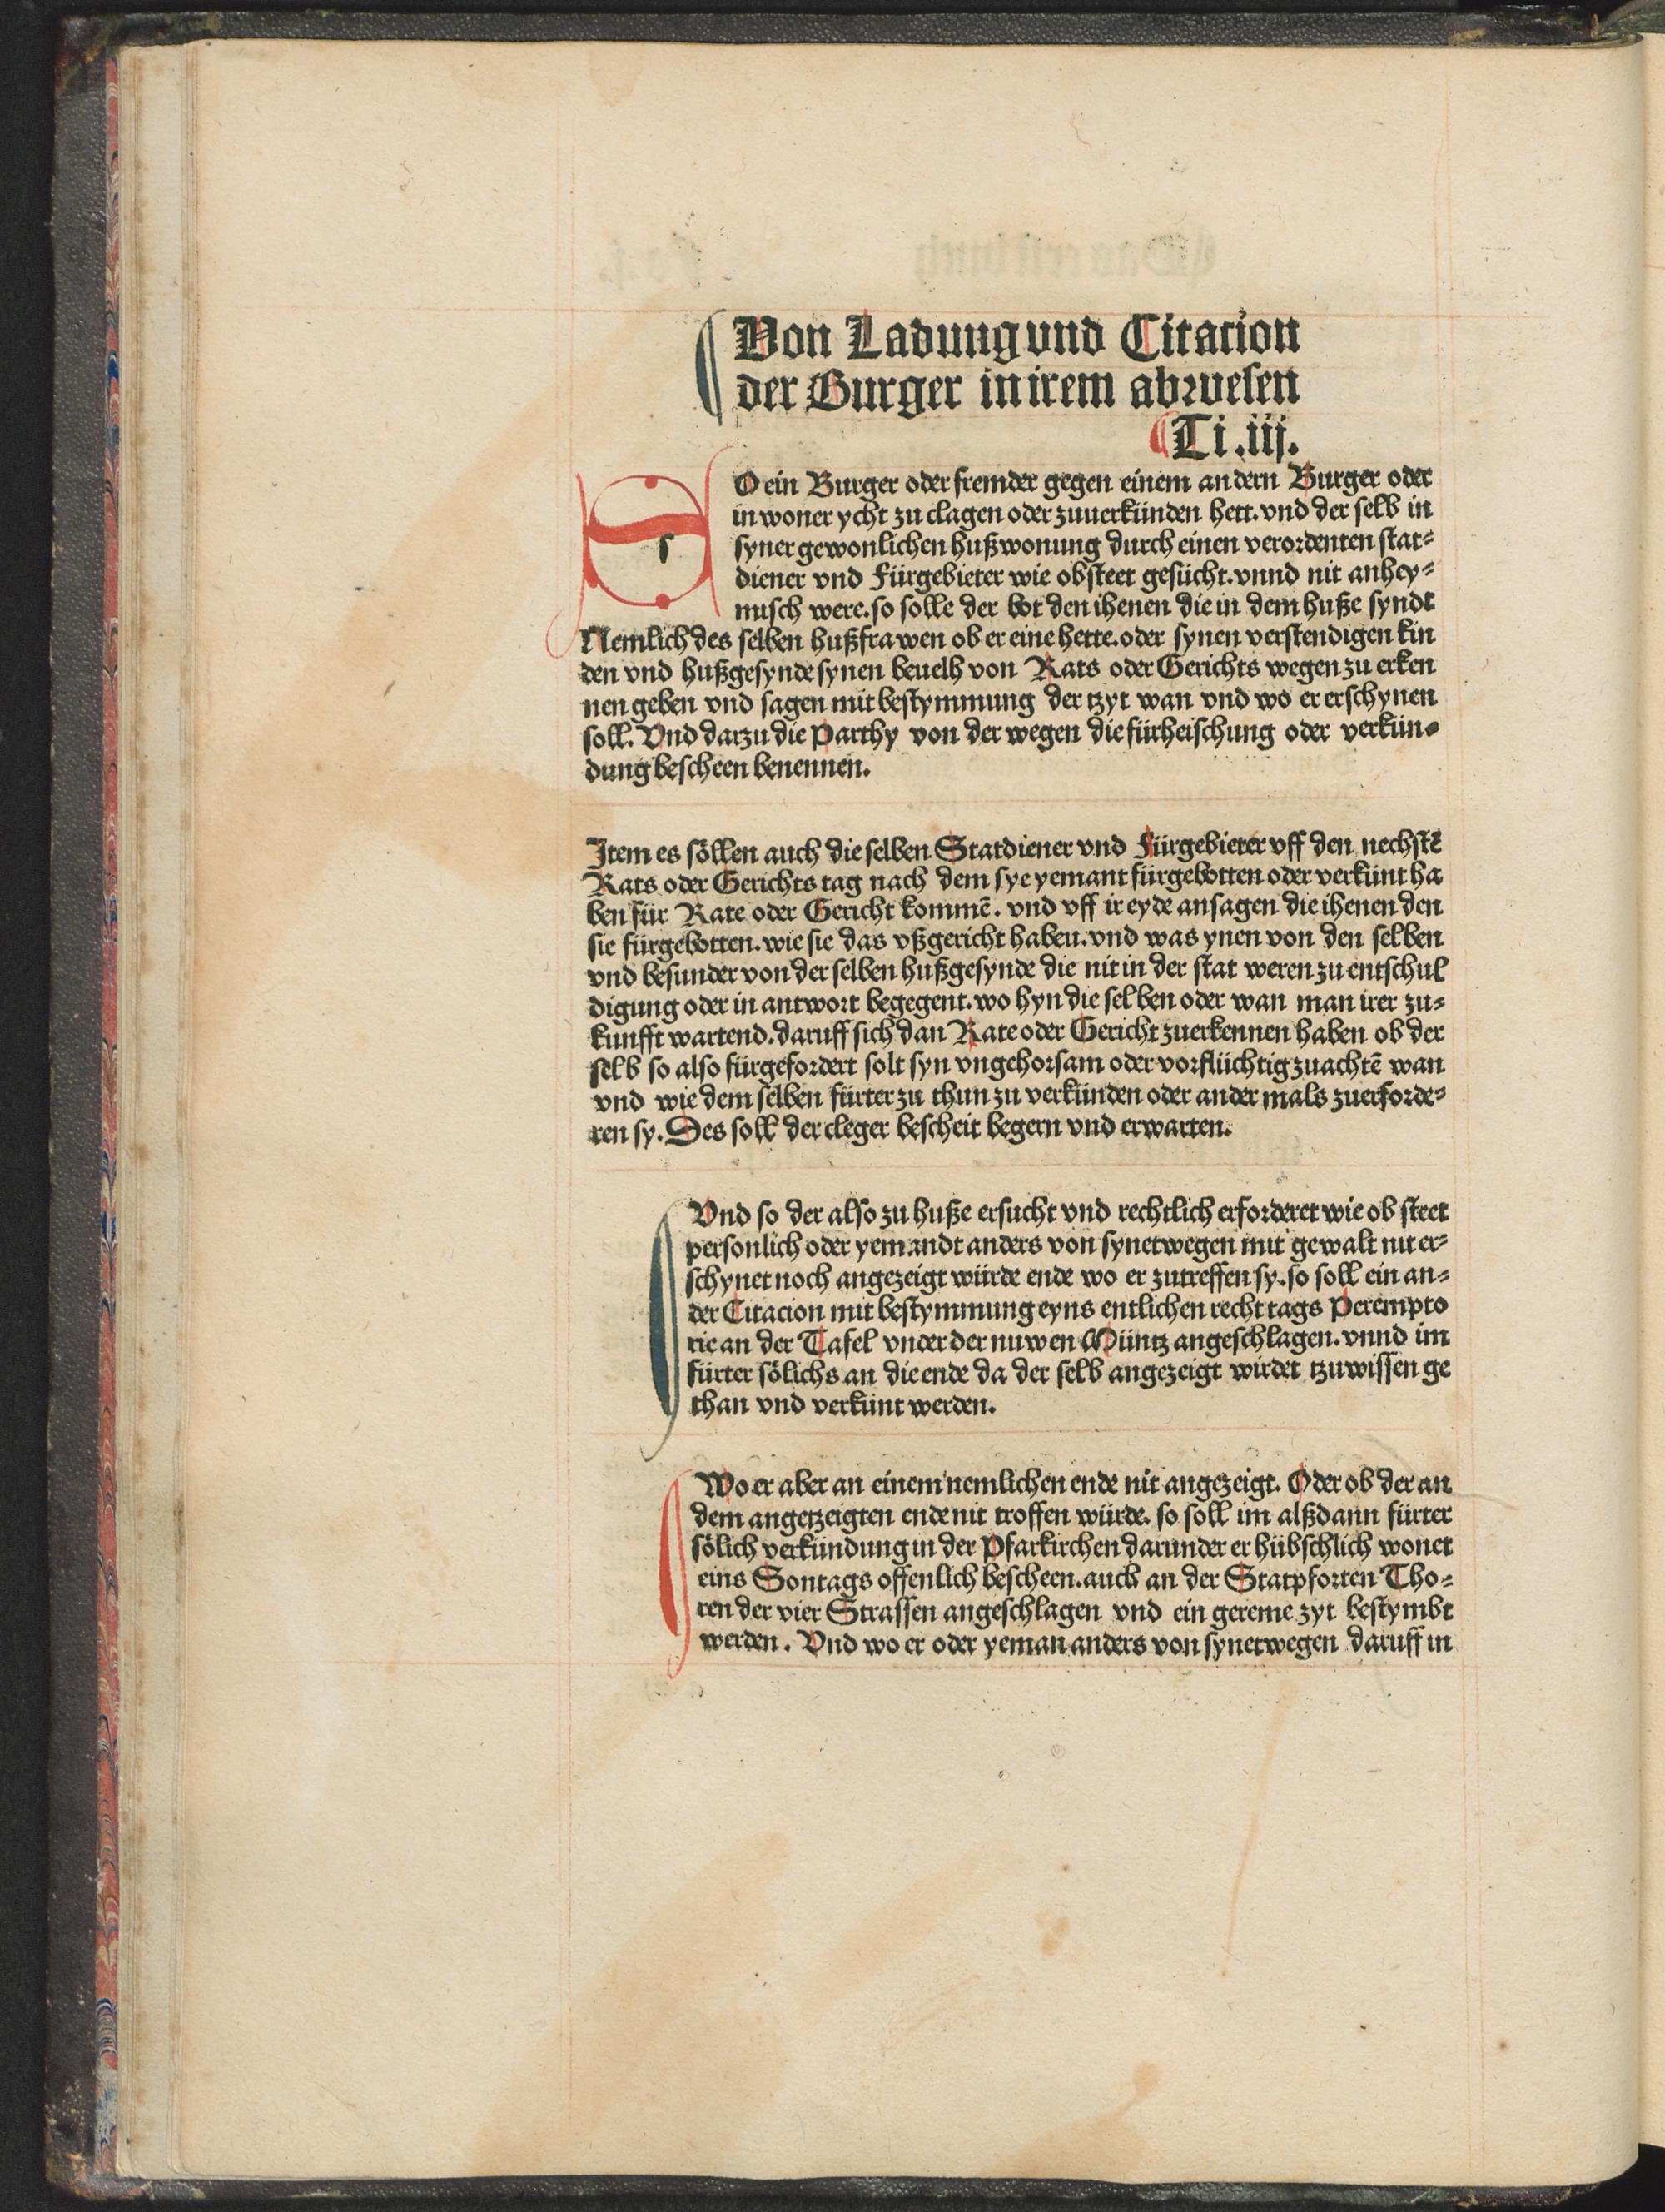 Von Ladung vnd Citacion
der Burger in irem abwesen
Ti .iij.
SO ein Burger oder fremder gegen einem andern Burger oder
inwoner ycht zu clagen oder zuuerkünden hett. vnd der selb in
syner gewonlichen hußwonung durch einen verordenten stat⸗
diener vnd Fürgebieter wie obsteet gesücht. vnnd nit anhey⸗
misch were. so solle der bot den ihenen die in dem huße syndt
Nemlich des selben hußfrawen ob er eine hette. oder synen verstendigen kin
den vnd hußgesynde synen beuelh von Rats oder Gerichts wegen zu erken
nen geben vnd sagen mit bestymmung der tzyt wan vnd wo er erschynen
soll. Vnd darzu die Parthy von der wegen die fürheischung oder verkün⸗
dung bescheen benennen.
Item es söllen auch die selben Statdiener vnd Fürgebieter vff den nechstē
Rats oder Gerichts tag nach dem sye yemant fürgebotten oder verkünt ha
ben für Rate oder Gericht kommē. vnd vff ir eyde ansagen die ihenen den
sie fürgebotten. wie sie das vßgericht haben. vnd was ynen von den selben
vnd besunder von der selben hußgesynde die nit in der stat weren zu entschul
digung oder in antwort begegent. wo hyn die selben oder wan man irer zu⸗
kunfft wartend. daruff sich dan Rate oder Gericht zuerkennen haben ob der
selb so also fürgefordert solt syn vngehorsam oder vorflüchtig zuachtē wan
vnd wie dem selben fürter zu thun zu verkünden oder ander mals zuerforde⸗
ren sy. Des soll der cleger bescheit begern vnd erwarten.
Vnd so der also zu huße ersucht vnd rechtlich erforderet wie ob steet
personlich oder yemandt anders von synetwegen mit gewalt nit er⸗
schynet noch angezeigt würde ende wo er zutreffen sy. so soll ein an⸗
der Citacion mit bestymmung eyns entlichen recht tags Perempto
rie an der Tafel vnder der nuwen Müntz angeschlagen. vnnd im
fürter sölichs an die ende da der selb angezeigt wirdet tzuwissen ge
than vnd verkünt werden.
Wo er aber an einem nemlichen ende nit angezeigt. Oder ob der an
dem angetzeigten ende nit troffen würde. so soll im alßdann fürter
sölich verkündung in der Pfarkirchen darunder er hübschlich wonet
eins Sontags offenlich bescheen. auch an der Statpforten Tho⸗
ren der vier Strassen angeschlagen vnd ein gereme zyt bestymbt
werden. Vnd wo er oder yeman anders von synetwegen daruff in